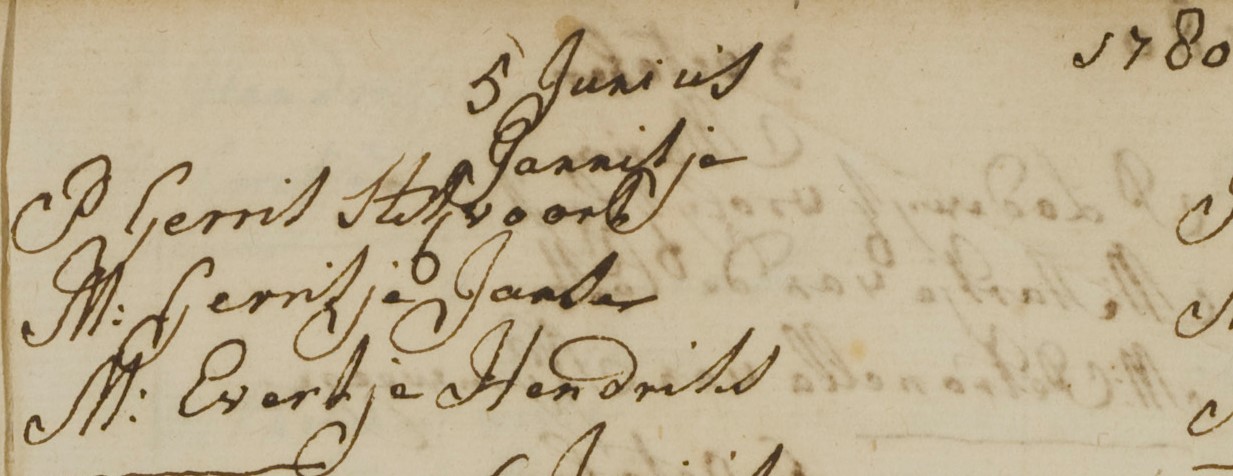 1780
5 Junius
Jannitje
P Gerrit
M: Gerritje Janse
M: Evertje Hendriks